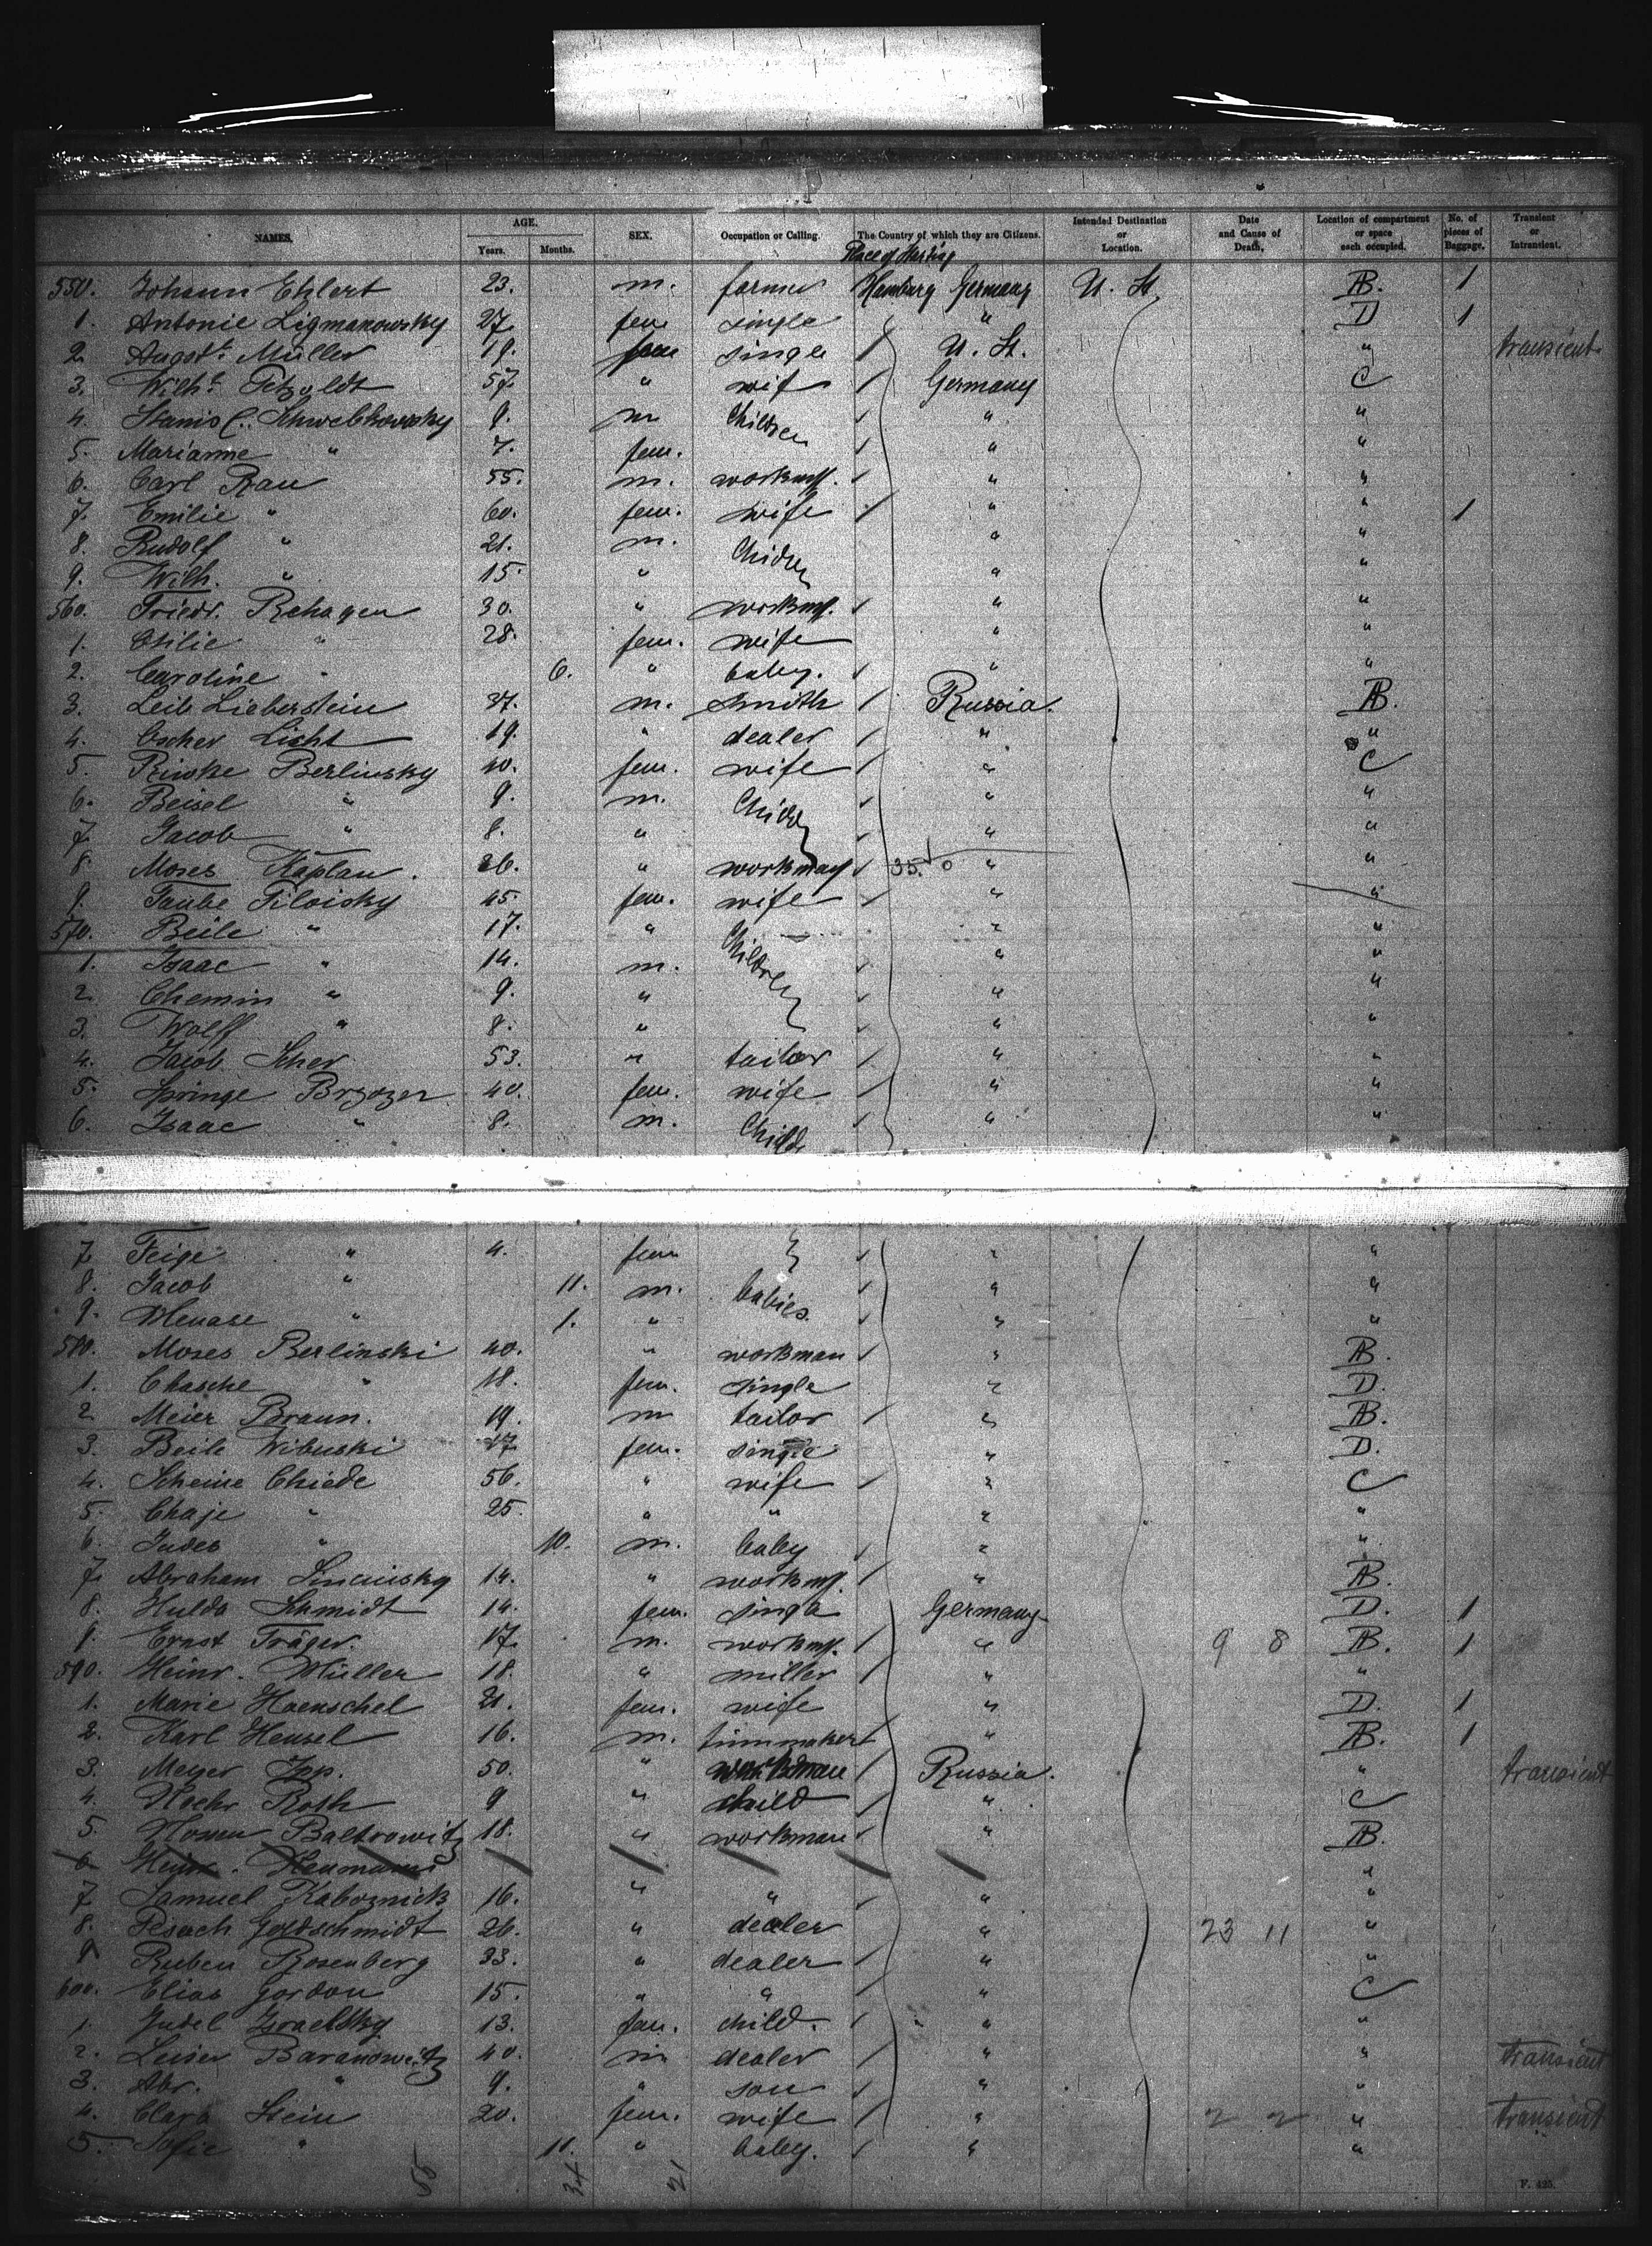 NAMES. AGE. Years. Months. SEX. Occupation or Calling. The Country of which they are Citizens. Intended Destination or Location. Date and Cause of Death, Location of compartment or space each occupied. No. of pieces of Baggage. Transient or Intransient.
Place of Starting
550. Johann Ehlert 23. m. farmer Hamburg Germany U. St. AB. 1
1. Antonie Ligmanowsky 27. fem single " D 1
2. Augste Müller 19. fem single U. St. " transient
3. Wilhe Petzoldt 57. " wife Germany C
4. Stanisl. Schwelkowsky 9. m Children " "
5. Marianne " 7. fem. " "
6. Carl Rau 55. m. workm. " "
7. Emilie " 60. fem. wife " " 1
8. Rudolf " 21. m. Children " "
9. Wilh. " 15. " " "
560. Friedr. Rehagen 30. " workm. " "
1. Otilie " 28. fem. wife " "
2. Caroline " 6. " baby. " "
3. Leib Lieberstein 37. m. smith Russia. AB.
4. Ascher Licht 19. " dealer " "
5. Riwke Berlinsky 40. fem. wife " C
6. Beisel " 9. m. Childr " "
7. Jacob " 8. " " "
8. Moses Kaplan. 26. " workman 35. 0 " "
9. Taube Filoisky 45. fem. wife " "
570. Beile " 17. " Children " "
1. Isaac " 14. m. " "
2. Chemin " 9. " " "
3. Wolff " 8. " " "
4. Jacob Scher 53. " tailor " "
5. Springe Brzozer 40. fem. wife " "
6. Isaac " 8. m. Childr " "
7. Feige " 4. fem " "
8. Jacob " 11. m. babies. " "
9. Menase " 1. " " "
580. Moses Berlinski 40. " workman " AB.
1. Chasche " 18. fem. single " D.
2. Meier Braun. 19. m tailor " AB.
3. Beile Wibuski 17. fem. single " D.
4. Scheine Chiede 56. " wife " C
5. Chaje " 25. " " " "
6. Judes " 10. m. baby " "
7. Abraham 14. " workm. " AB.
8. Hulda Schmidt 14. fem. single Germany D. 1
9. Ernst Träger. 17. m. workm. " 9 8 AB. 1
590. Heinr. Müller 18. " miller " "
1. Marie Haenschel 21. fem. wife " D. 1
2. Karl Hensel 16. m. " AB. 1
3. Meyer Ipp. 50. " workman Russia. " transient
4. Roth 9 " child " C
5. Baltrowitz 18. " workman " AB.
6 Heinr. Neumann "
7 Samuel Kaboznick 16. " " " "
8. Pesach Goldschmidt 26. " dealer " 23 11 "
9 Ruben Rosenberg 33. " dealer " "
600. Elias Gordon 15. " " " C
1. Judel Israelsky 13. fem. child. " "
2. Leiser Baranowitz 40. m dealer " " transient
3. Abr. " 9. " son " "
4. Clara Stein 20. fem. wife " 2 2 " transient
5. Sofie " 11. " baby. " "
55 34 21
F. 425.